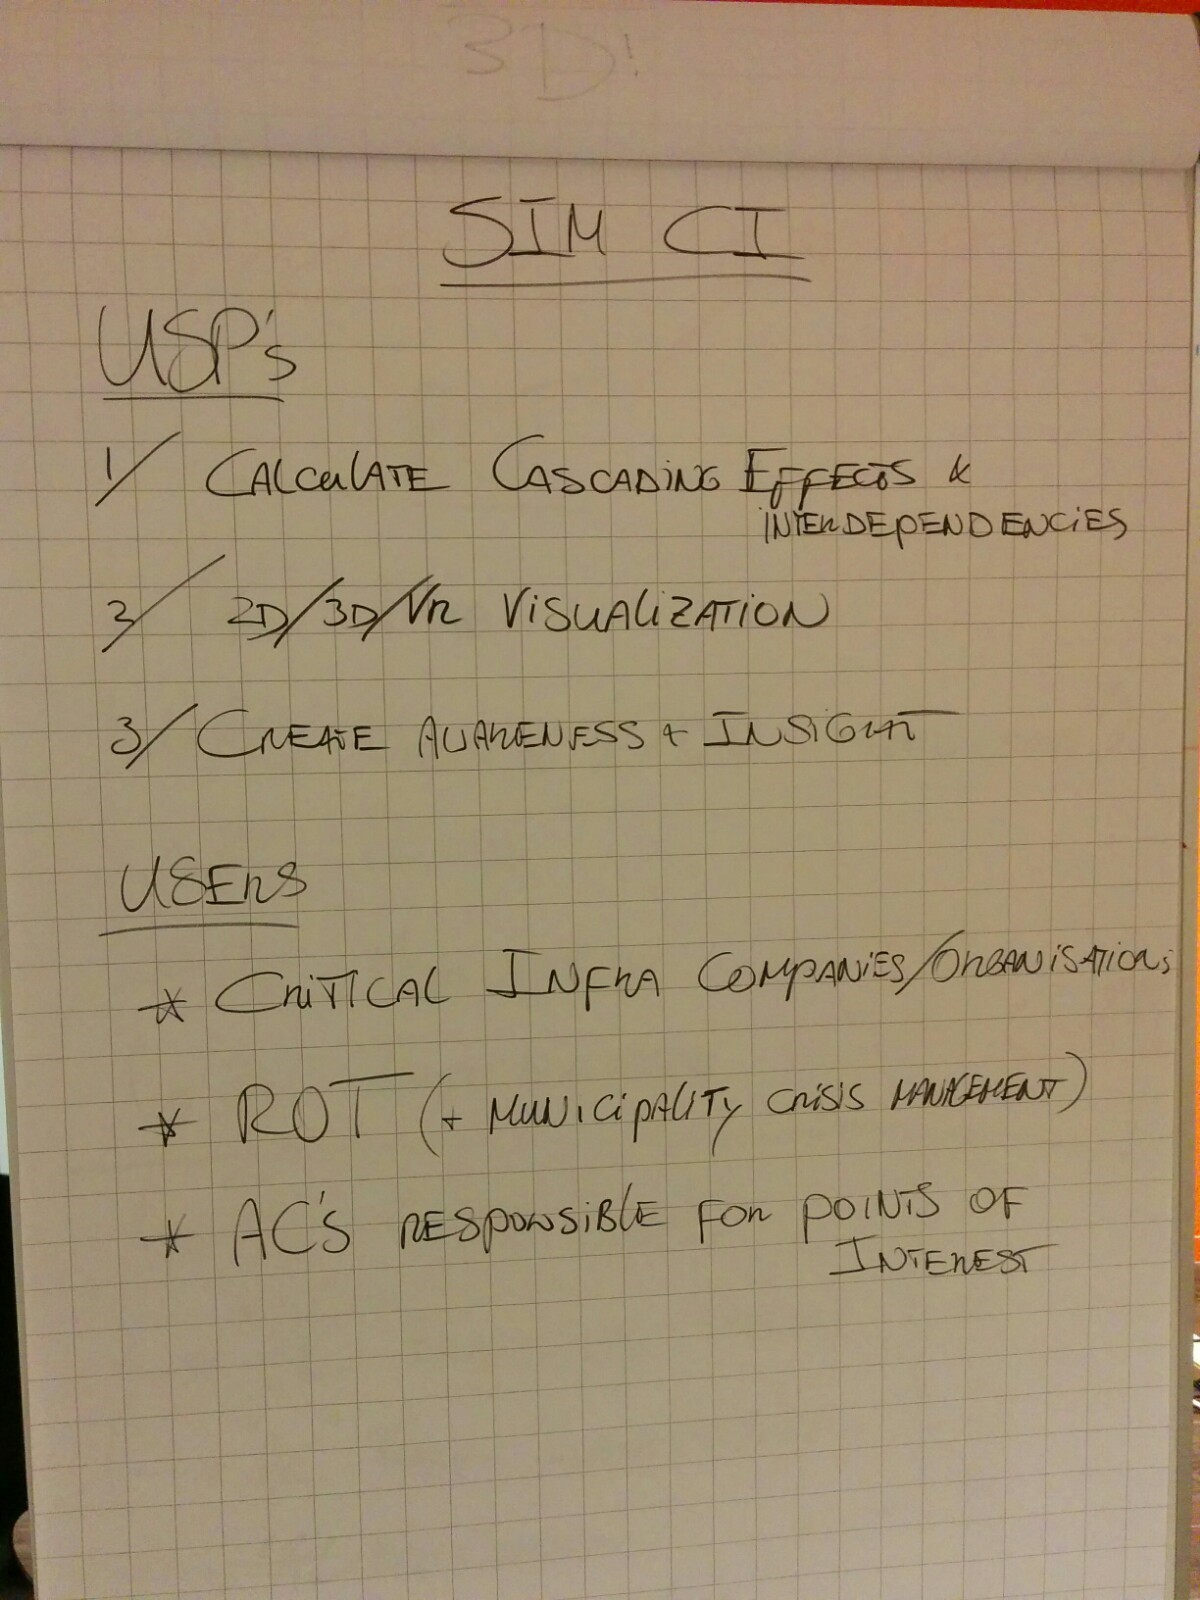 3D!
SIM CI
USP's
1/ CALCULATE CASCADING EFFECTS &
INTERDEPENDENCIES
2/ 2D/3D/VR VISUALIZATION
3/ CREATE AWARENESS + INSIGHT
USERS
* CRITICAL INFRA COMPANIES/ORGANISATIONS
* ROT (+ MUNICIPALITY CRISIS MANAGEMENT)
* AC'S RESPONSIBLE FOR POINTS OF
INTEREST